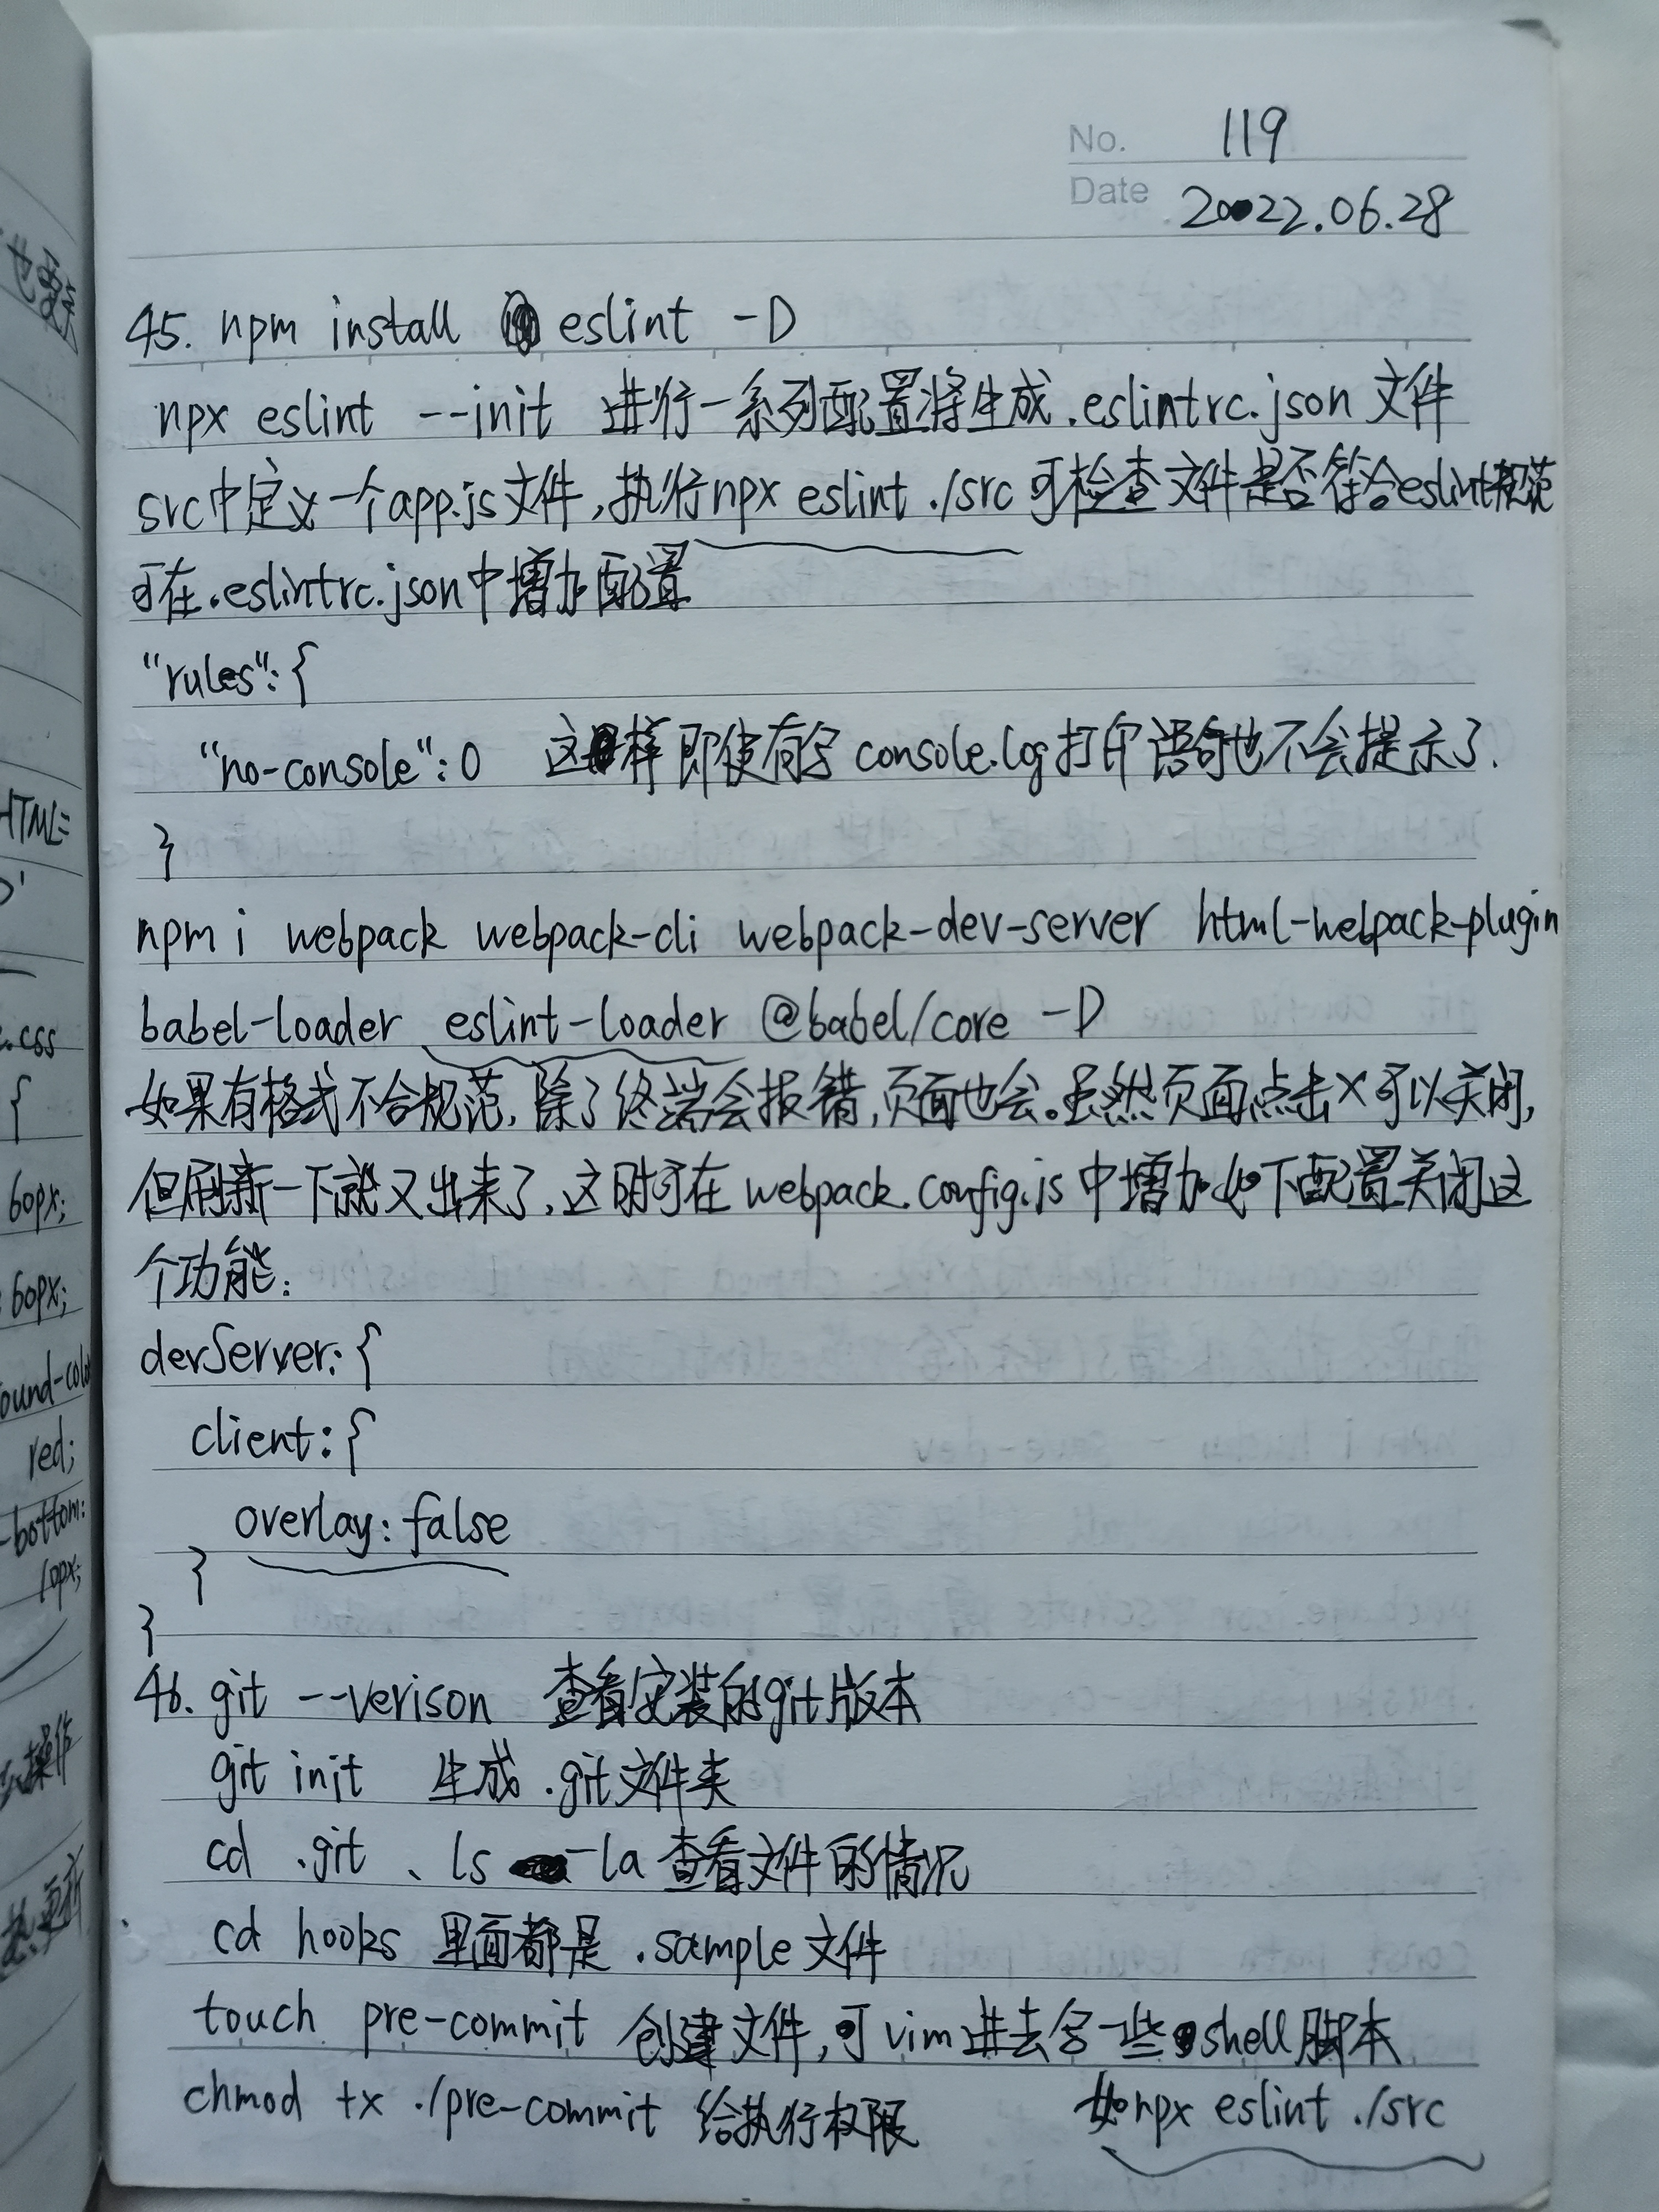 No. 119
Date 2022.06.28
45. npm install eslint -D
npx eslint --init 进行一系列配置将生成.eslintrc.json文件
src中定义一个app.js文件,执行npx eslint ./src可检查文件是否符合eslint规范
可在.eslintrc.json中增加配置
"rules":{
"no-console":0 这样即使有写console.log打印语句也不会提示了.
}
npm i webpack webpack-cli webpack-dev-server html-webpack-plugin
babel-loader eslint-loader @babel/core -D
如果有格式不合规范,除了终端会报错,页面也会。虽然页面点击×可以关闭,
但刷新一下就又出来了,这时可在webpack.config.js中增加如下配置关闭这
个功能:
devServer:{
client:{
overlay:false
}
}
46. git --verison 查看安装的git版本
git init 生成.git文件夹
cd .git、ls -la查看文件的情况
cd hooks 里面都是.sample文件
touch pre-commit 创建文件,可vim进去写一些shell脚本
chmod +x ./pre-commit 给执行权限 如npx eslint ./src
HTML=
.css
{
60px;
60px;
ound-colo
red;
-bottom:
10px;
操作
热更新